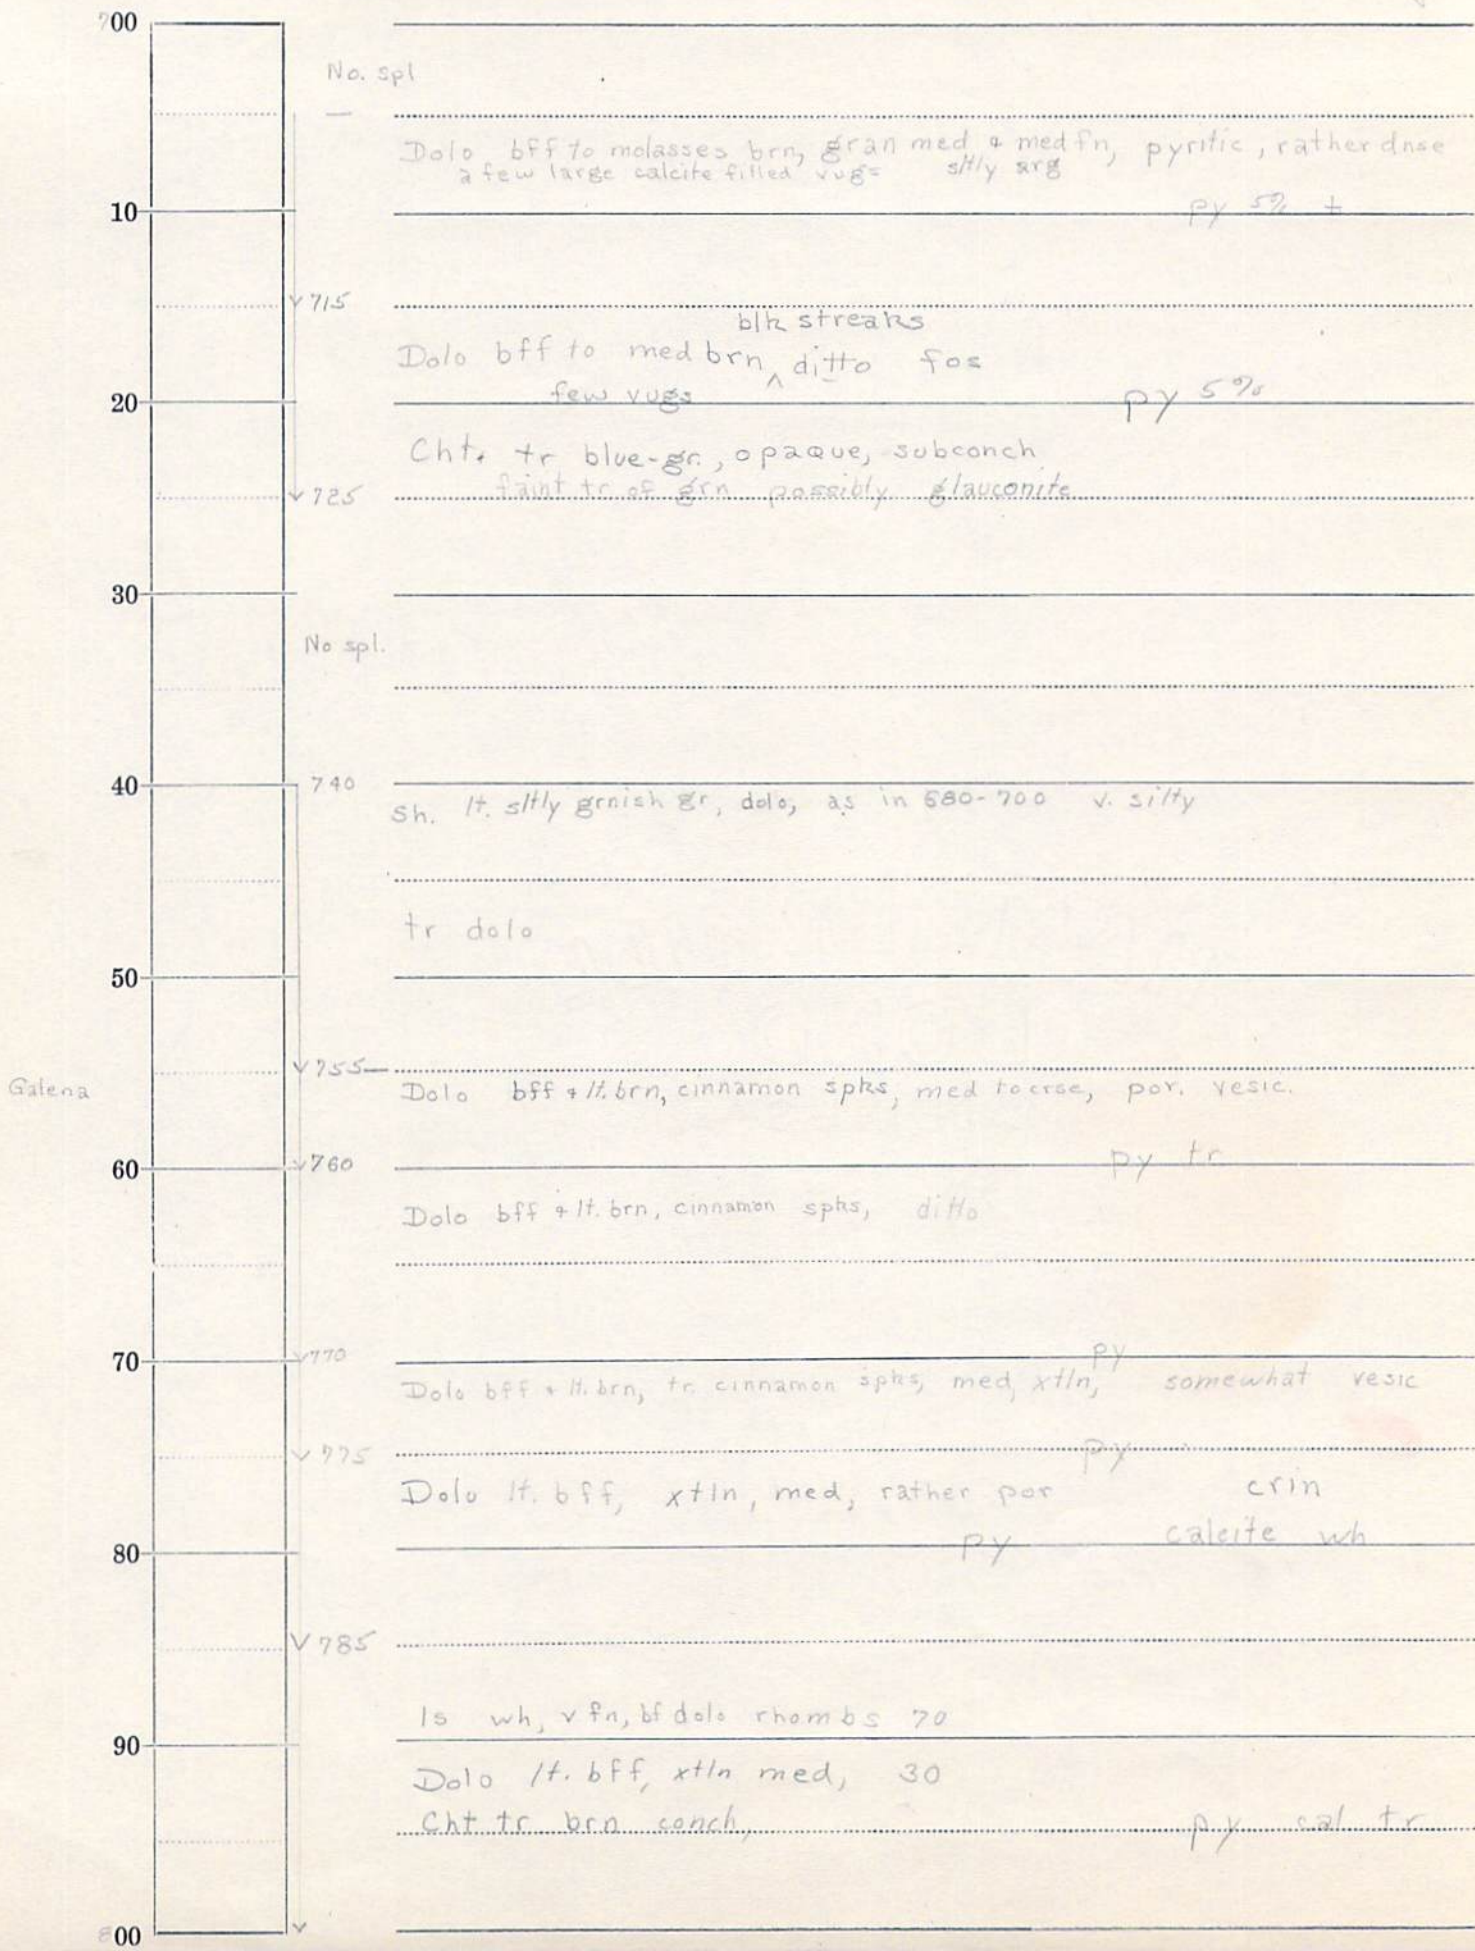 700
No. spl
Dolo bff to molasses brn, gran med & med fn, pyritic, rather dnse
a few large calcite filled vugs sltly arg
10 py 5% ±
715
blk streaks
Dolo bff to med brn ^ ditto fos
few vugs
20 py 5%
Cht. tr blue-gr., opaque, subconch
725 faint tr of grn possibly glauconite
30
No spl.
40 740
Sh. lt. sltly grnish gr, dolo, as in 680-700 v. silty
tr dolo
50
755
Galena Dolo bff & lt. brn, cinnamon spks, med to crse, por. vesic.
60 760 py tr
Dolo bff & lt. brn, cinnamon spks, ditto
70 770 py
Dolo bff & lt. brn, tr. cinnamon spks, med, xtln, somewhat vesic
775 py
Dolo lt. bff, xtln, med, rather por crin
80 py calcite wh
785
ls wh, v fn, bf dolo rhombs 70
90
Dolo lt. bff, xtln med, 30
Cht tr brn conch, py cal tr
800